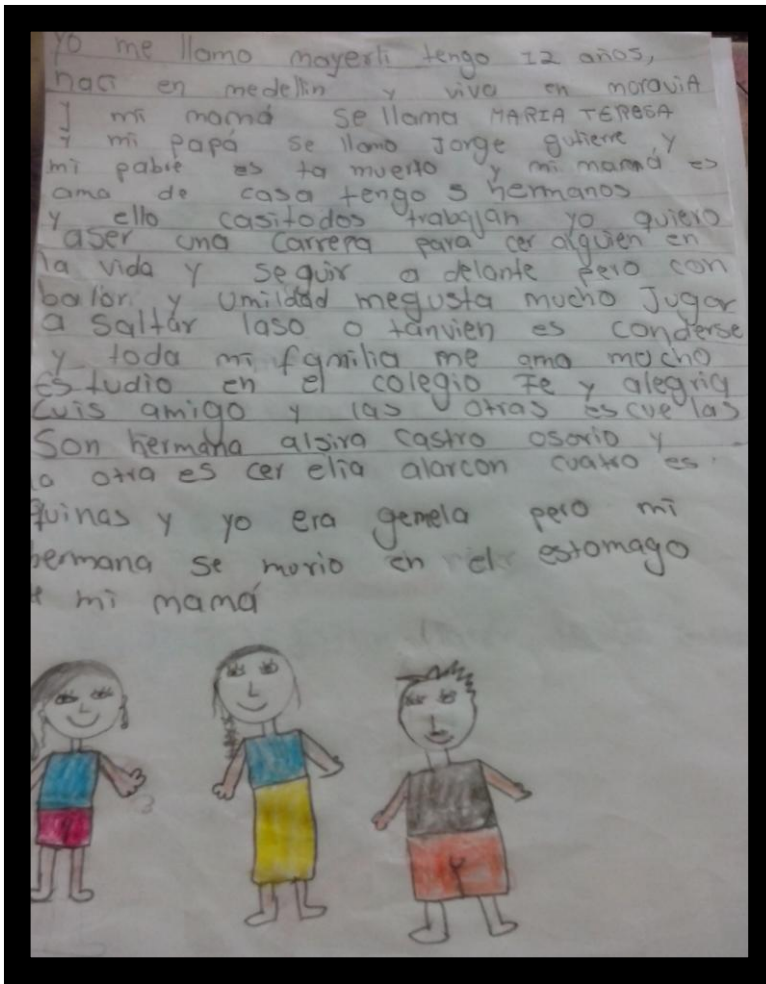 yo me llamo mayerli tengo 12 años,
naci en medellin y vivo en moravia
y mi mamá se llama MARIA TERESA
y mi papá se llamo Jorge gutierre y
mi pabre es ta muerto y mi mamá es
ama de casa tengo 5 hermanos
y ello casitodos trabajan yo quiero
aser una carrera para cer alguien en
la vida y seguir a delante pero con
balor y Umildad megusta mucho Jugar
a saltar laso o tanvien es conderse
y toda mi familia me ama mucho
Estudio en el colegio Fe y alegria
Luis amigo y las otras escuelas
Son hermana alsira castro osorio y
la otra es cer elia alarcon cuatro es
quinas y yo era gemela pero mi
hermana se murio en el estomago
mi mamá